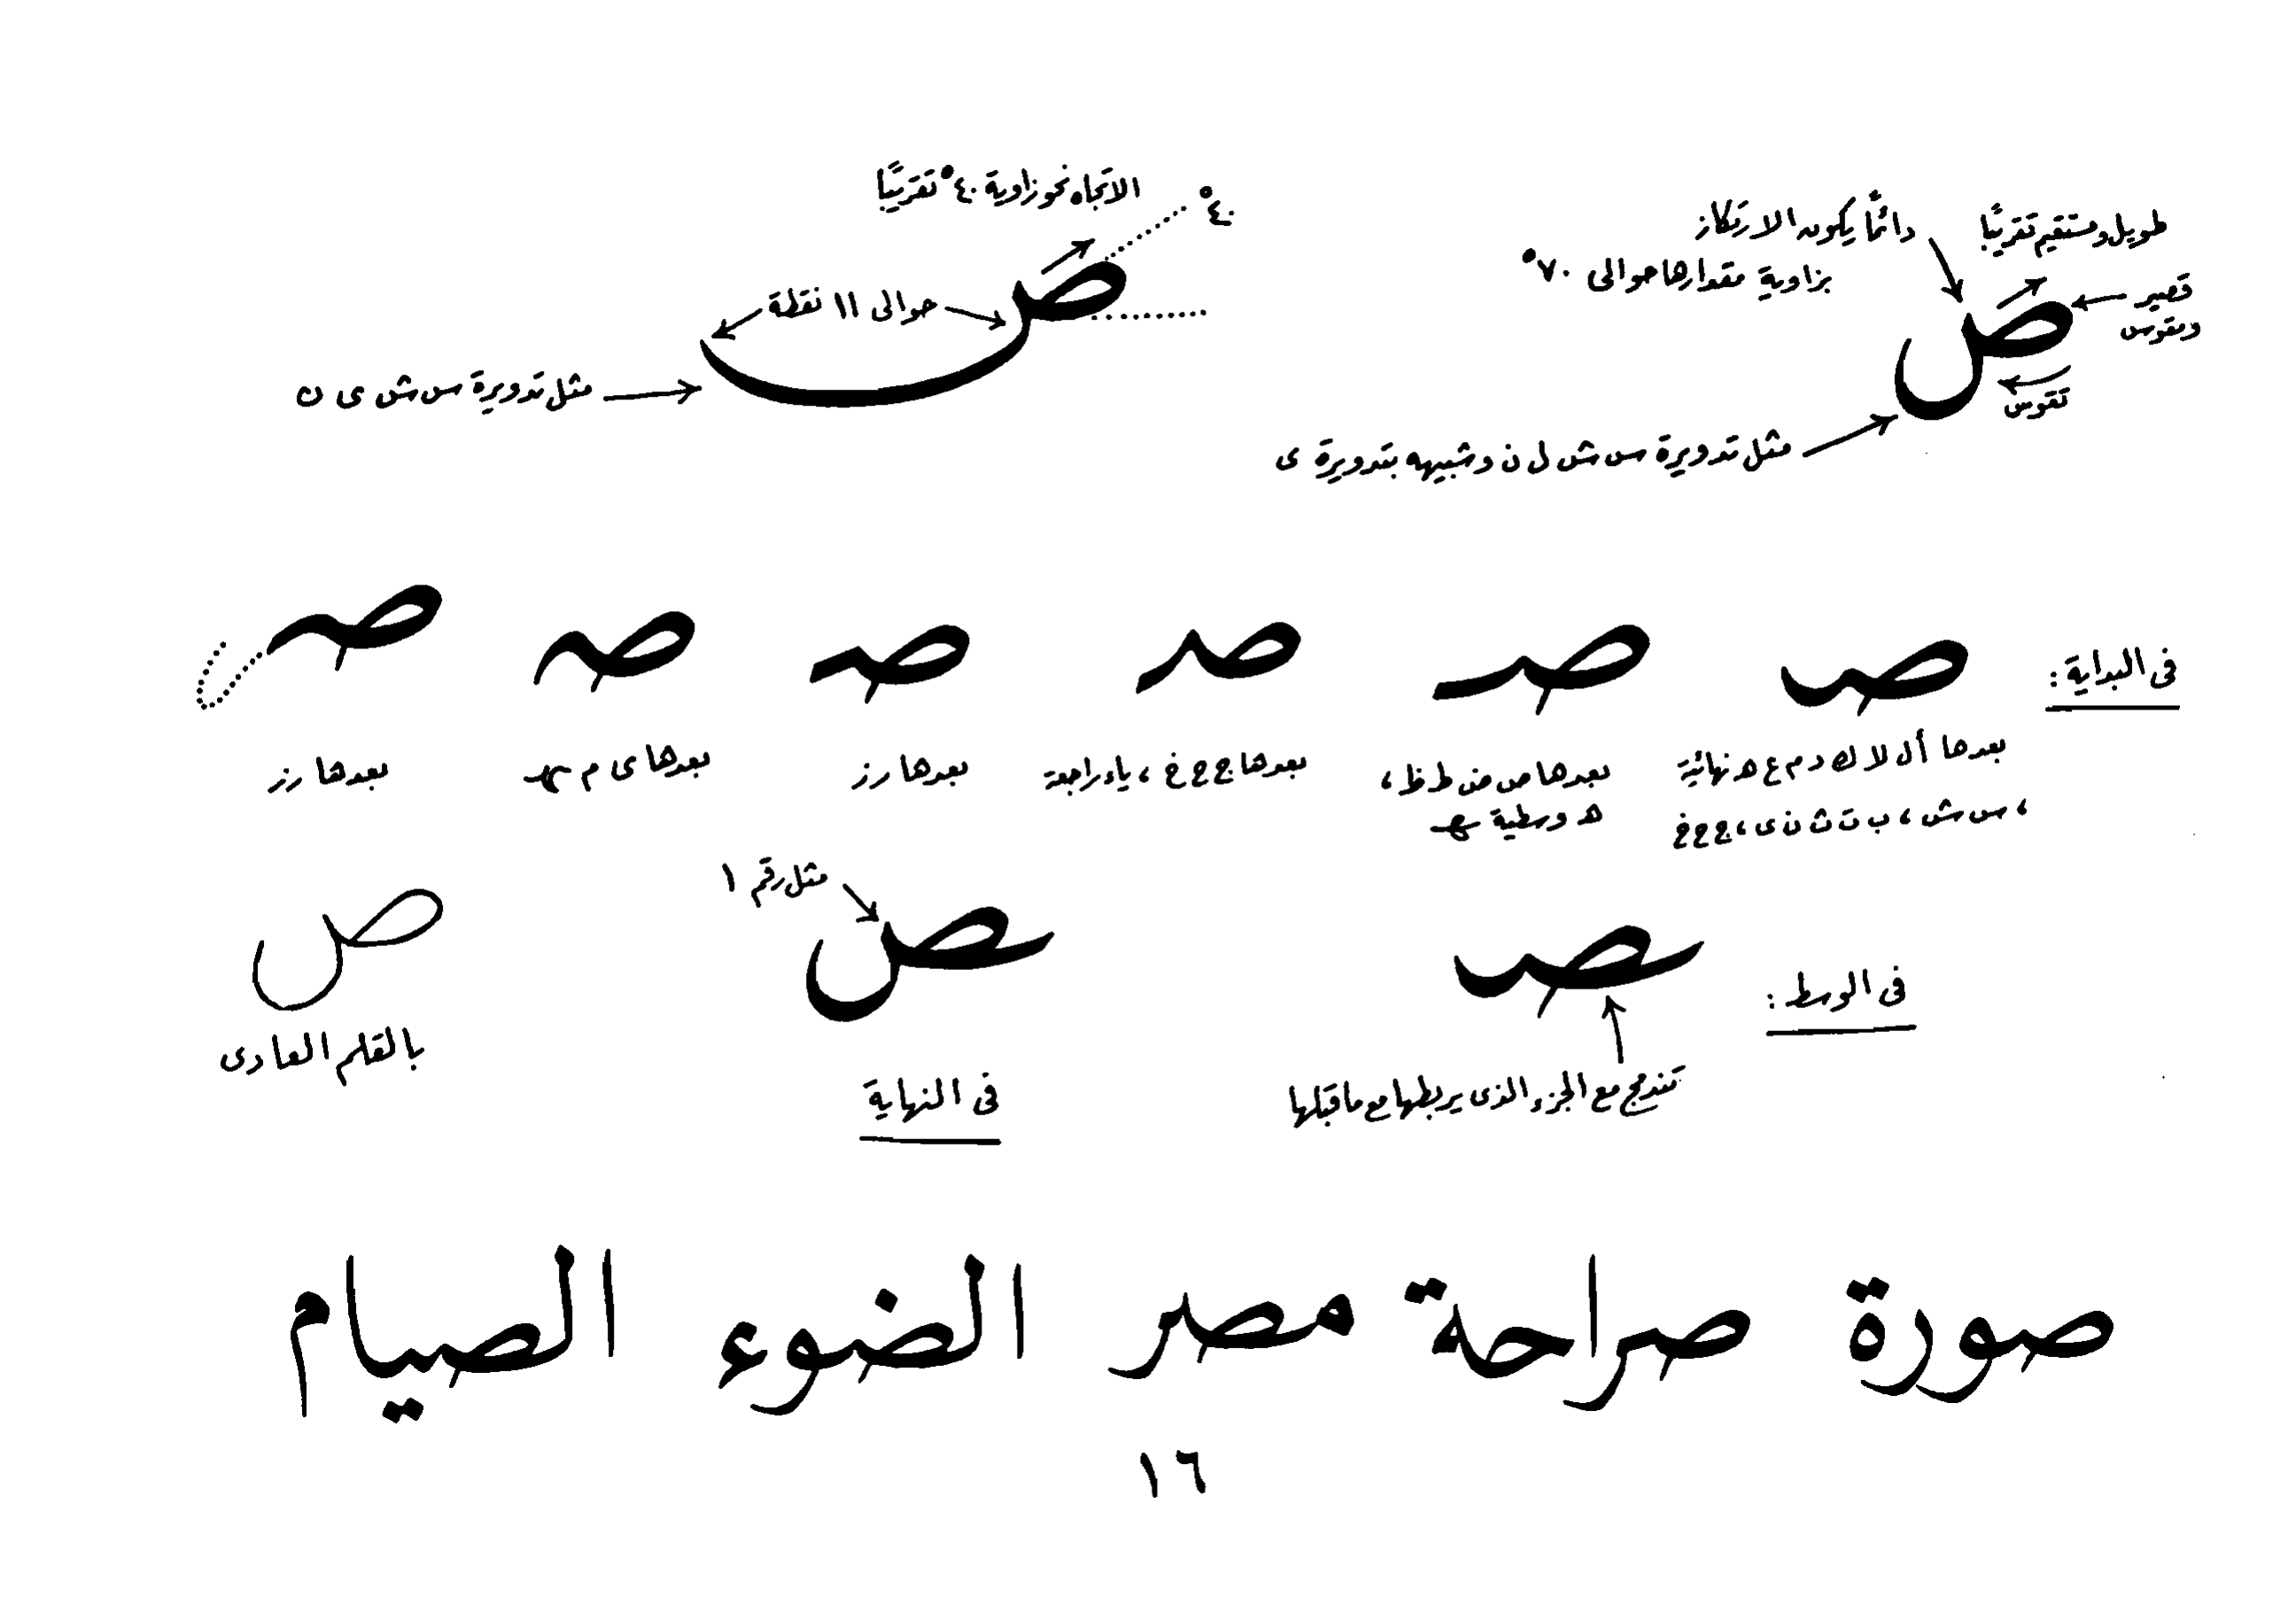 طويل ومستقيم تقريبًا
قصير
ومقوس
دائمًا يكون الارتكاز
بزاوية مقدارها حوالى ٧٠°
ص
تقوس
مثل تدويرة س ش ل ن وشبيهه بتدويرة ى
الاتجاه نحو زاوية ٤٠° تقريبًا
٤٠°
حوالى ١١ نقطة
ص
مثل تدويرة س ش ى ن
فى البداية :
صـ صـ صـ صـ صـ صـ
بعدها أ ل لا ك د م ع ه نهائية
، س ش ، ب ت ث ن ى ، ج ح خ
بعدها ص ض ط ظ ،
ه وسطية ـهـ
بعدها ج ح خ ، ياء راجعة
بعدها ر ز
بعدها ى م ـهـ
بعدها ر ز
فى الوسط :
ـصـ
تندمج مع الجزء الذى يربطها مع ما قبلها
مثل رقم ١
ـص
فى النهاية
ص
بالقلم العادى
صورة صراحة مصر الضوء الصيام
١٦